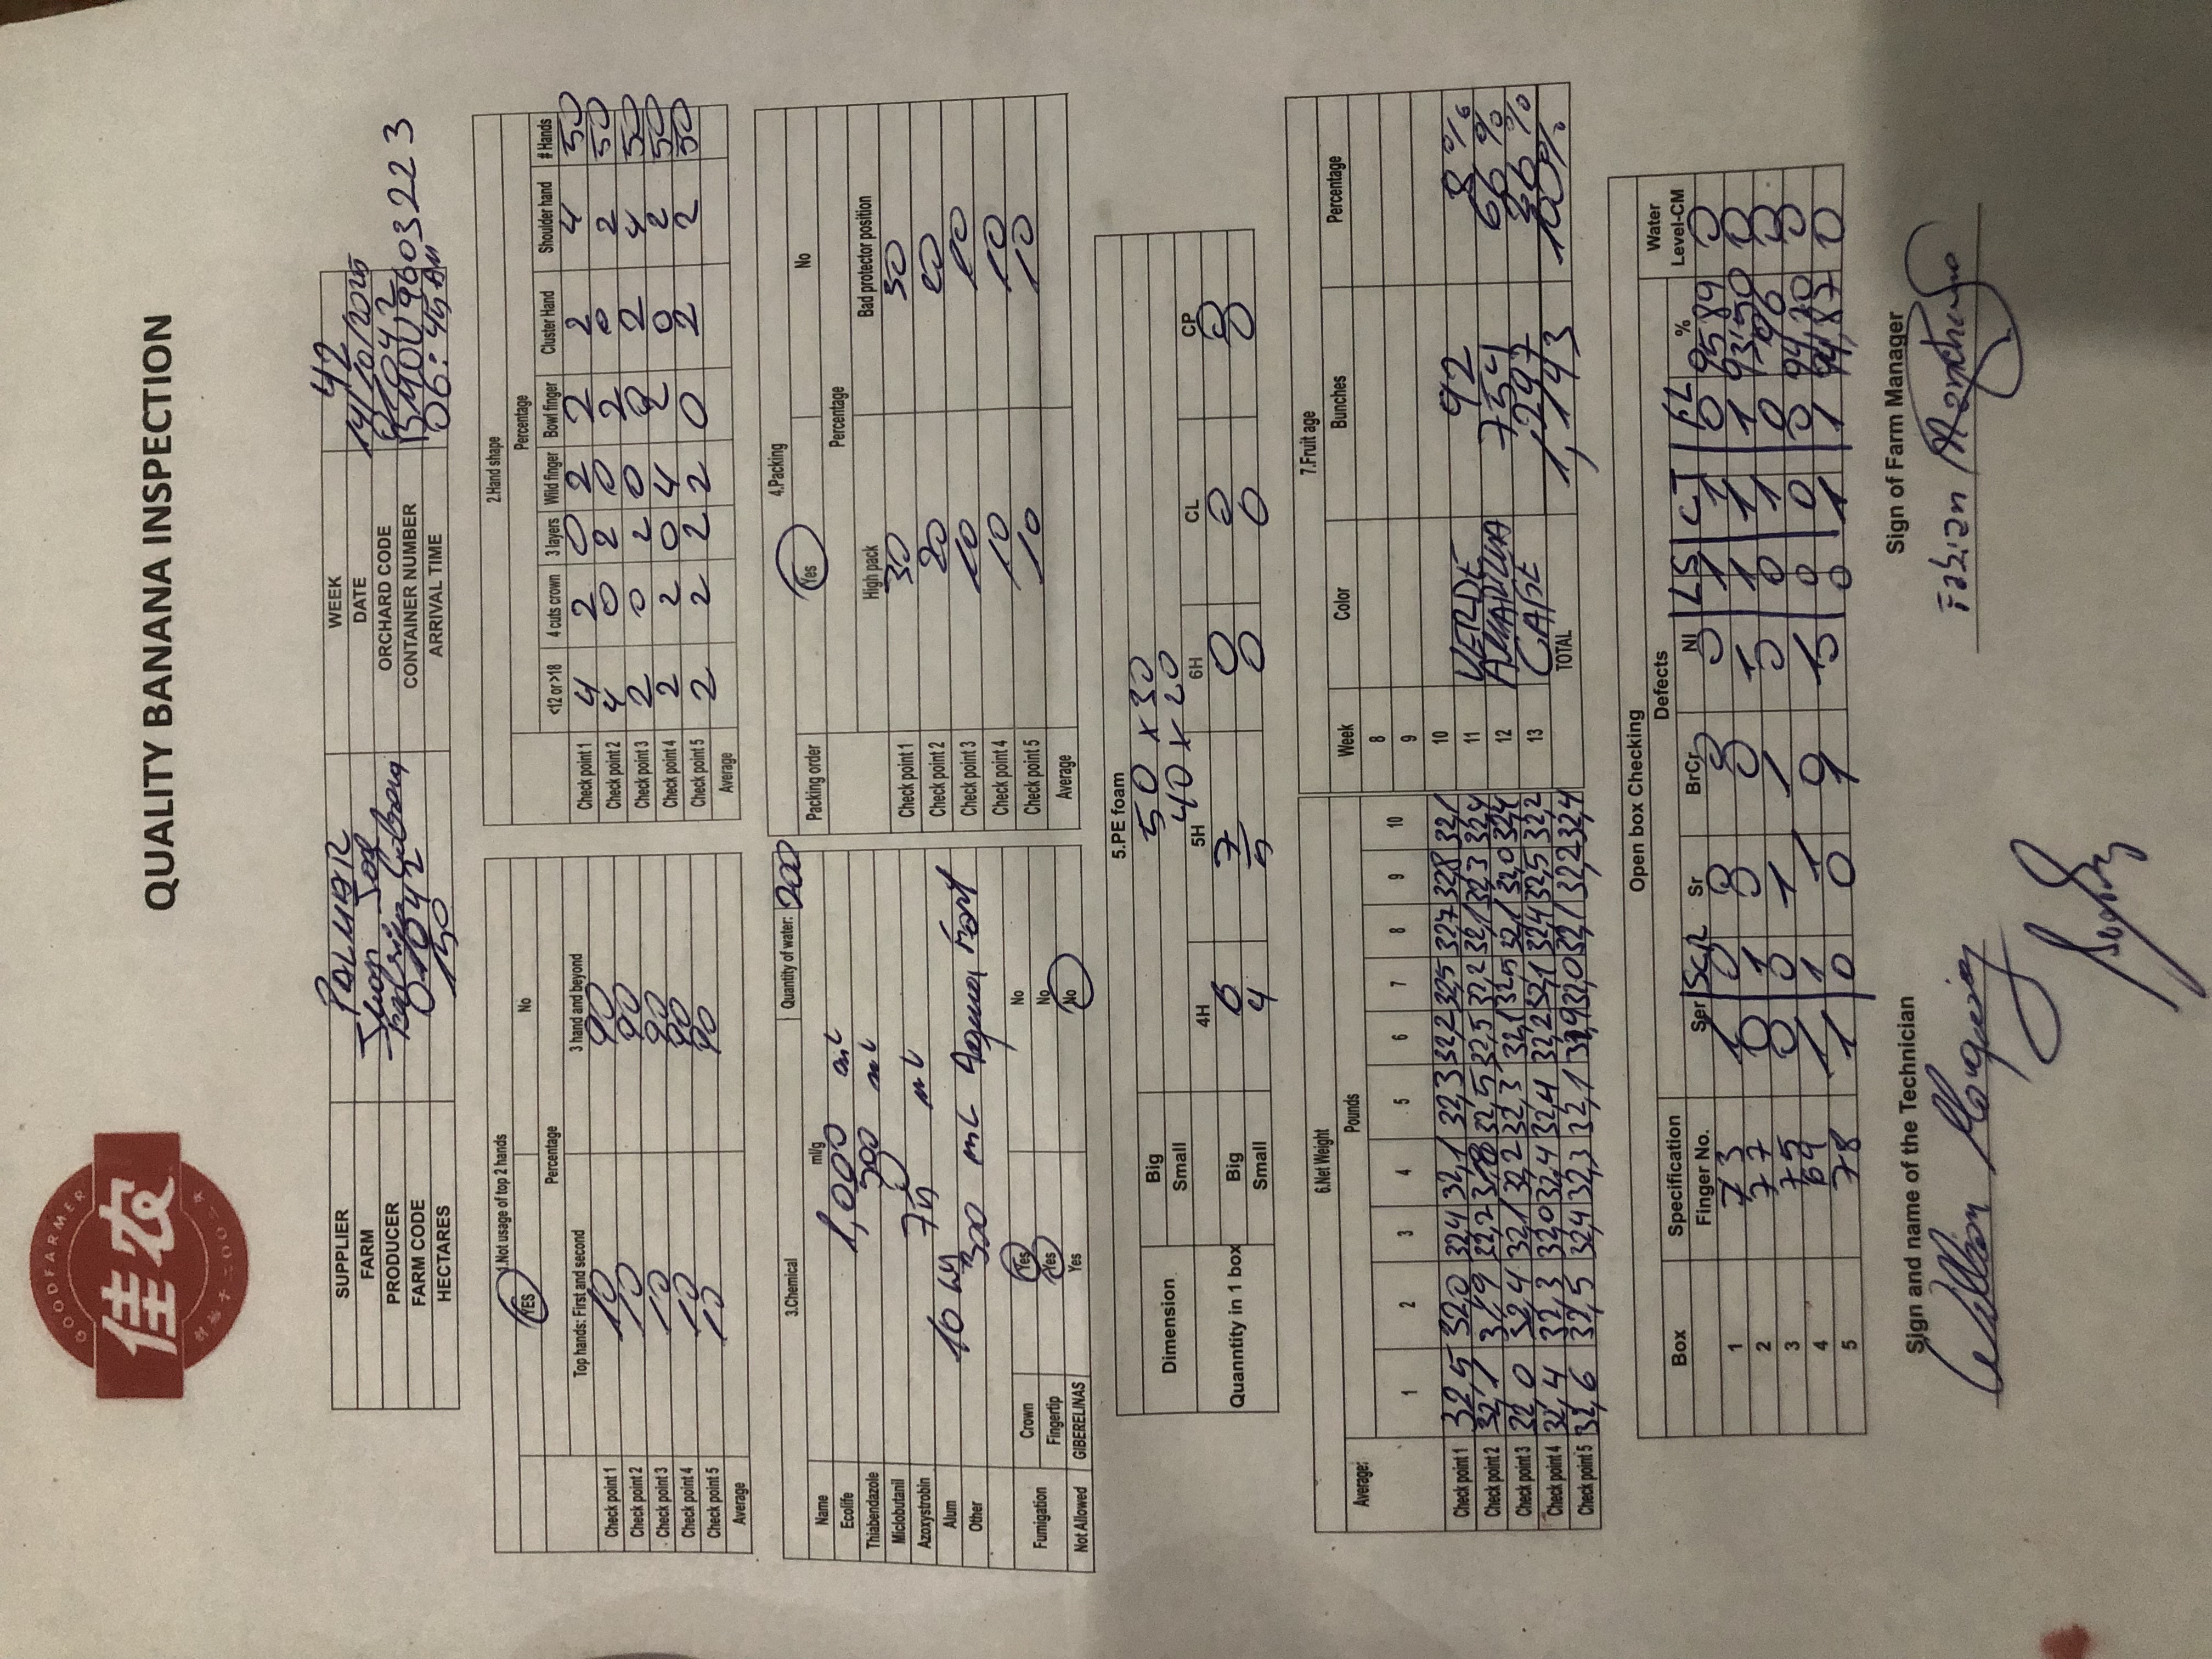 GOODFARMER
佳农
创始于二〇〇二年
QUALITY BANANA INSPECTION
SUPPLIER PALMAR WEEK 42
FARM Juan José DATE 14/10/2025
PRODUCER ORCHARD CODE 01042
FARM CODE 01042 CONTAINER NUMBER BMOU9603223
HECTARES 150 ARRIVAL TIME 06:45 AM
1.Not usage of top 2 hands
YES No
Percentage
Top hands: First and second 3 hand and beyond
Check point 1 10 90
Check point 2 10 90
Check point 3 10 90
Check point 4 10 90
Check point 5 10 90
Average
2.Hand shape
Percentage
<12 or >18 4 cuts crown 3 layers Wild finger Bowl finger Cluster Hand Shoulder hand # Hands
Check point 1 4 2 0 2 2 2 4 50
Check point 2 4 0 2 0 2 0 2 50
Check point 3 2 0 2 0 2 4 50
Check point 4 2 2 0 4 2 0 2 50
Check point 5 2 2 2 2 0 2 2 50
Average
3.Chemical Quantity of water: 200
Name ml/g
Ecolife 1,000 mL
Thiabendazole 500 mL
Miclobutanil 0
Azoxystrobin 75 mL
Alum 10 kg
Other 300 mL Aqua Fort
Fumigation Crown Yes No
Fingertip Yes No
Not Allowed GIBERELINAS Yes No
4.Packing
Packing order Yes No
Percentage
High pack Bad protector position
Check point 1 30 30
Check point 2 20 20
Check point 3 10 10
Check point 4 10 10
Check point 5 10 10
Average
5.PE foam
Dimension Big 50 x 30
Small 40 x 20
4H 5H 6H CL CP
Quanntity in 1 box Big 6 7 0 0 0
Small 4 5 0 0 0
6.Net Weight
Average: Pounds
1 2 3 4 5 6 7 8 9 10
Check point 1 32,5 32,0 32,4 32,1 32,3 32,2 32,5 32,7 32,8 32,1
Check point 2 32,1 31,9 32,2 31,8 32,5 32,5 32,2 32,1 32,3 32,4
Check point 3 32,0 32,4 32,1 32,2 32,3 32,1 32,5 32,1 32,0 32,4
Check point 4 32,4 32,3 32,0 32,4 32,4 32,2 32,1 32,4 32,5 32,2
Check point 5 32,6 32,5 32,4 32,3 32,1 31,9 32,0 32,1 32,2 32,4
7.Fruit age
Week Color Bunches Percentage
8
9
10
11 VERDE 92 8%
12 AMARILLA 754 66%
13 CAFE 297 26%
TOTAL 1,143 100%
Open box Checking
Box Specification Defects Water
Finger No. Ser SCR Sr BrCr NI LS CT FL % Level-CM
1 73 1 0 0 0 0 1 1 0 95,89 0
2 77 0 1 0 0 1 1 1 1 93,50 0
3 75 0 0 1 1 0 0 1 0 96 0
4 69 1 1 1 0 1 0 0 0 94,20 0
5 78 1 0 0 1 0 0 1 1 94,87 0
Sign and name of the Technician
Sign of Farm Manager
Fabian